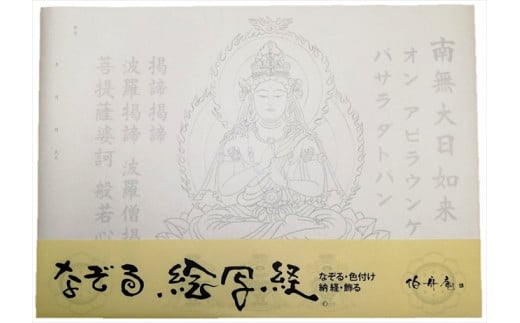 南無大日如来
オン アビラウンケ
バサラ ダトバン
掲諦掲諦
波羅掲諦 波羅僧掲
菩提薩婆訶 般若心
なぞる 絵写経
なぞる・色付け
納経・飾る